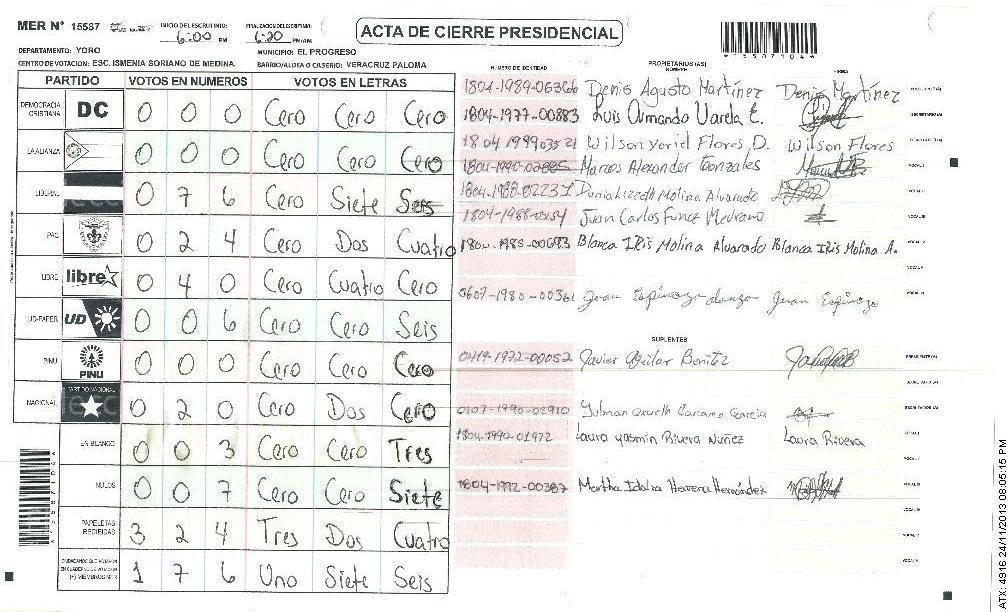 MER N° 15587 INICIO DE ESCRUTINIO: 6:00 PM FINALIZACION DE ESCRUTINIO: 6:20 PM/AM
ACTA DE CIERRE PRESIDENCIAL
DEPARTAMENTO: YORO MUNICIPIO: EL PROGRESO
CENTRO DE VOTACION: ESC. ISMENIA SORIANO DE MEDINA. BARRIO/ALDEA O CASERIO: VERACRUZ PALOMA
PARTIDO VOTOS EN NUMEROS VOTOS EN LETRAS
DEMOCRACIA CRISTIANA DC 0 0 0 Cero Cero Cero
LA ALIANZA 0 0 0 Cero Cero Cero
LIBERAL 0 7 6 Cero Siete Seis
PAC 0 2 4 Cero Dos Cuatro
LIBRE libre 0 4 0 Cero Cuatro Cero
UD-FAPER UD 0 0 6 Cero Cero Seis
PINU PINU 0 0 0 Cero Cero Cero
NACIONAL PARTIDO NACIONAL 0 2 0 Cero Dos Cero
EN BLANCO 0 0 3 Cero Cero Tres
NULOS 0 0 7 Cero Cero Siete
PAPELETAS RECIBIDAS 3 2 4 Tres Dos Cuatro
CIUDADANOS QUE VOTARON EN CUADERNO DE VOTACION (+) MIEMBROS MER 1 7 6 Uno Siete Seis
NUMERO DE IDENTIDAD PROPIETARIOS (AS) NOMBRE FIRMA
1804-1989-06366 Denis Agusto Martínez Denis Martínez PRESIDENTE (A)
1804-1977-00883 Luis Armando Varela E. SECRETARIO (A)
1804 1999 03521 Wilson Yoriel Flores D. Wilson Flores ESCRUTADOR (A)
1804-1990-02885 Marcos Alexander Gonzales VOCAL I
1804-1988-02237 Dania Lizzeth Molina Alvarado VOCAL II
1804-1988-03154 Juan Carlos Funez Medrano VOCAL III
1804-1985-00693 Blanca IRis Molina Alvarado Blanca IRis Molina A. VOCAL IV
VOCAL V
0607-1980-00361 Juan Espinoza Juan Espinoza VOCAL VI
SUPLENTES
0419-1972-00052 Javier Aguilar Benitez PRESIDENTE (A)
SECRETARIO (A)
0107-1990-02910 Carcamo Garcia ESCRUTADOR (A)
1804-1990-01972 Laura Yasmin Rivera Nuñez Laura Rivera VOCAL I
VOCAL II
1804-1992-00387 Martha Idalia Herrera Hernández VOCAL III
VOCAL IV
VOCAL V
VOCAL VI
ATX: 4916 24/11/2013 08:05:15 PM